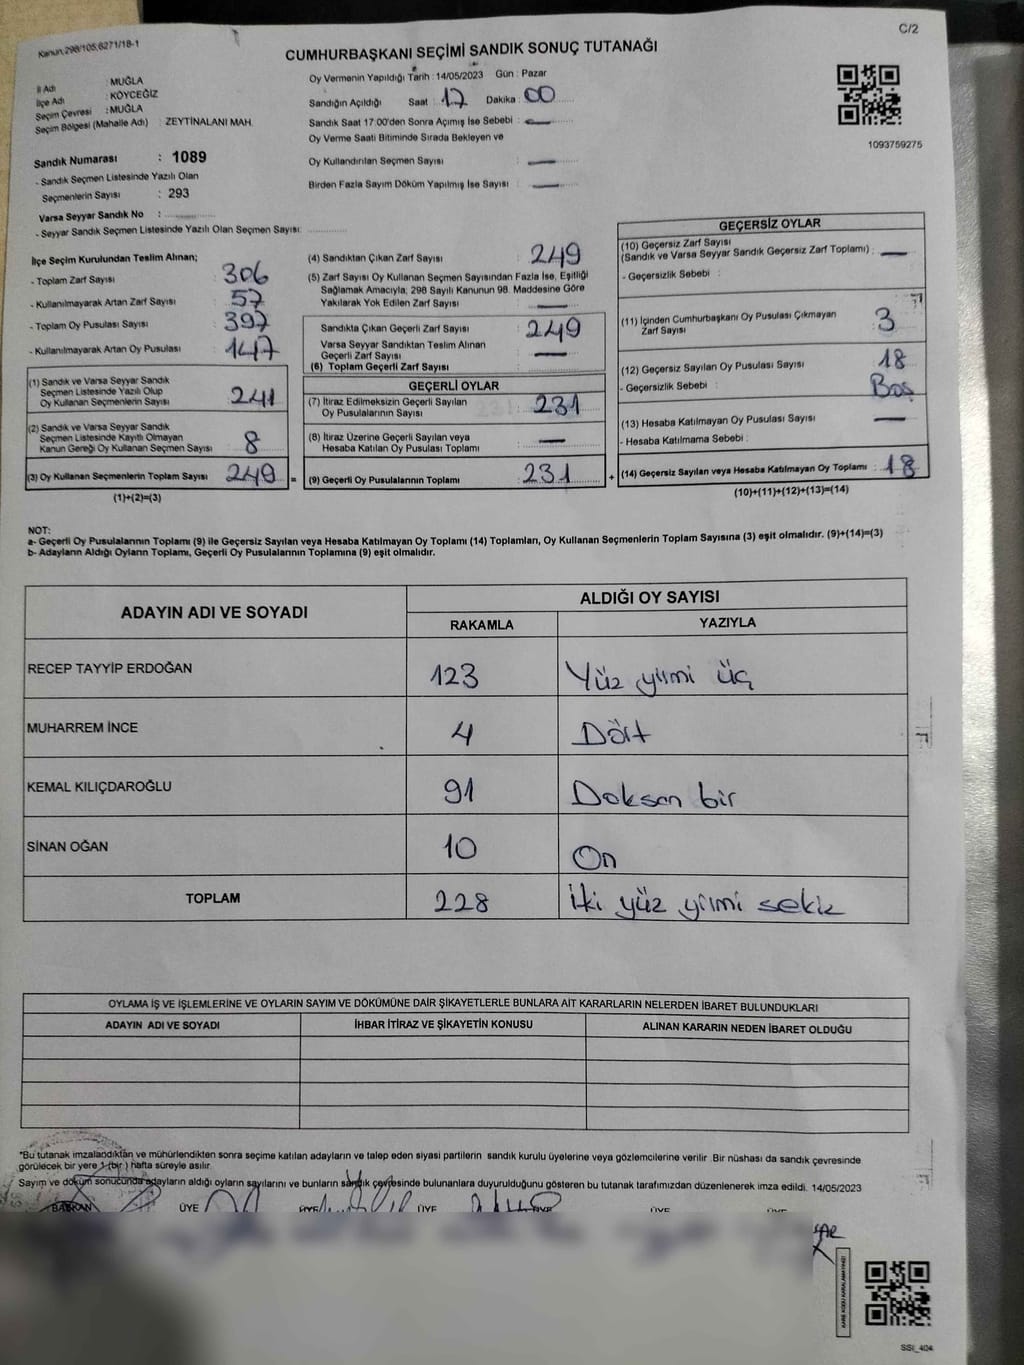 Kanun:298/105;6271/18-1
C/2
CUMHURBAŞKANI SEÇİMİ SANDIK SONUÇ TUTANAĞI
İl Adı : MUĞLA
İlçe Adı : KÖYCEĞİZ
Seçim Çevresi : MUĞLA
Seçim Bölgesi (Mahalle Adı) : ZEYTİNALANI MAH.
Sandık Numarası : 1089
- Sandık Seçmen Listesinde Yazılı Olan
Seçmenlerin Sayısı : 293
Varsa Seyyar Sandık No :
- Seyyar Sandık Seçmen Listesinde Yazılı Olan Seçmen Sayısı:
Oy Vermenin Yapıldığı Tarih : 14/05/2023 Gün : Pazar
Sandığın Açıldığı Saat : 17 Dakika : 00
Sandık Saat 17:00'den Sonra Açımış İse Sebebi : —
Oy Verme Saati Bitiminde Sırada Bekleyen ve
Oy Kullandırılan Seçmen Sayısı : —
Birden Fazla Sayım Döküm Yapılmış İse Sayısı : —
1093759275
İlçe Seçim Kurulundan Teslim Alınan;
- Toplam Zarf Sayısı : 306
- Kullanılmayarak Artan Zarf Sayısı : 57
- Toplam Oy Pusulası Sayısı : 397
- Kullanılmayarak Artan Oy Pusulası : 147
(1) Sandık ve Varsa Seyyar Sandık
Seçmen Listesinde Yazılı Olup
Oy Kullanan Seçmenlerin Sayısı : 241
(2) Sandık ve Varsa Seyyar Sandık
Seçmen Listesinde Kayıtlı Olmayan
Kanun Gereği Oy Kullanan Seçmen Sayısı : 8
(3) Oy Kullanan Seçmenlerin Toplam Sayısı : 249
(1)+(2)=(3)
(4) Sandıktan Çıkan Zarf Sayısı : 249
(5) Zarf Sayısı Oy Kullanan Seçmen Sayısından Fazla İse, Eşitliği
Sağlamak Amacıyla; 298 Sayılı Kanunun 98. Maddesine Göre
Yakılarak Yok Edilen Zarf Sayısı : —
Sandıkta Çıkan Geçerli Zarf Sayısı : 249
Varsa Seyyar Sandıktan Teslim Alınan
Geçerli Zarf Sayısı : —
(6) Toplam Geçerli Zarf Sayısı :
GEÇERLİ OYLAR
(7) İtiraz Edilmeksizin Geçerli Sayılan
Oy Pusulalarının Sayısı : 231
(8) İtiraz Üzerine Geçerli Sayılan veya
Hesaba Katılan Oy Pusulası Toplamı : —
= (9) Geçerli Oy Pusulalarının Toplamı : 231 +
GEÇERSİZ OYLAR
(10) Geçersiz Zarf Sayısı
(Sandık ve Varsa Seyyar Sandık Geçersiz Zarf Toplamı) : —
- Geçersizlik Sebebi :
(11) İçinden Cumhurbaşkanı Oy Pusulası Çıkmayan
Zarf Sayısı : 3
(12) Geçersiz Sayılan Oy Pusulası Sayısı : 18
- Geçersizlik Sebebi : Boş
(13) Hesaba Katılmayan Oy Pusulası Sayısı : —
- Hesaba Katılmama Sebebi :
(14) Geçersiz Sayılan veya Hesaba Katılmayan Oy Toplamı : 18
(10)+(11)+(12)+(13)=(14)
NOT:
a- Geçerli Oy Pusulalarının Toplamı (9) ile Geçersiz Sayılan veya Hesaba Katılmayan Oy Toplamı (14) Toplamları, Oy Kullanan Seçmenlerin Toplam Sayısına (3) eşit olmalıdır. (9)+(14)=(3)
b- Adayların Aldığı Oyların Toplamı, Geçerli Oy Pusulalarının Toplamına (9) eşit olmalıdır.
ADAYIN ADI VE SOYADI ALDIĞI OY SAYISI
RAKAMLA YAZIYLA
RECEP TAYYİP ERDOĞAN 123 Yüz yirmi üç
MUHARREM İNCE 4 Dört
KEMAL KILIÇDAROĞLU 91 Doksan bir
SİNAN OĞAN 10 On
TOPLAM 228 İki yüz yirmi sekiz
OYLAMA İŞ VE İŞLEMLERİNE VE OYLARIN SAYIM VE DÖKÜMÜNE DAİR ŞİKAYETLERLE BUNLARA AİT KARARLARIN NELERDEN İBARET BULUNDUKLARI
ADAYIN ADI VE SOYADI İHBAR İTİRAZ VE ŞİKAYETİN KONUSU ALINAN KARARIN NEDEN İBARET OLDUĞU
*Bu tutanak imzalandıktan ve mühürlendikten sonra seçime katılan adayların ve talep eden siyasi partilerin sandık kurulu üyelerine veya gözlemcilerine verilir. Bir nüshası da sandık çevresinde
görülecek bir yere 1 (bir) hafta süreyle asılır.
Sayım ve döküm sonucunda adayların aldığı oyların sayılarını ve bunların sandık çevresinde bulunanlara duyurulduğunu gösteren bu tutanak tarafımızdan düzenlenerek imza edildi. 14/05/2023
BAŞKAN ÜYE ÜYE ÜYE ÜYE ÜYE ÜYE
SSI_404